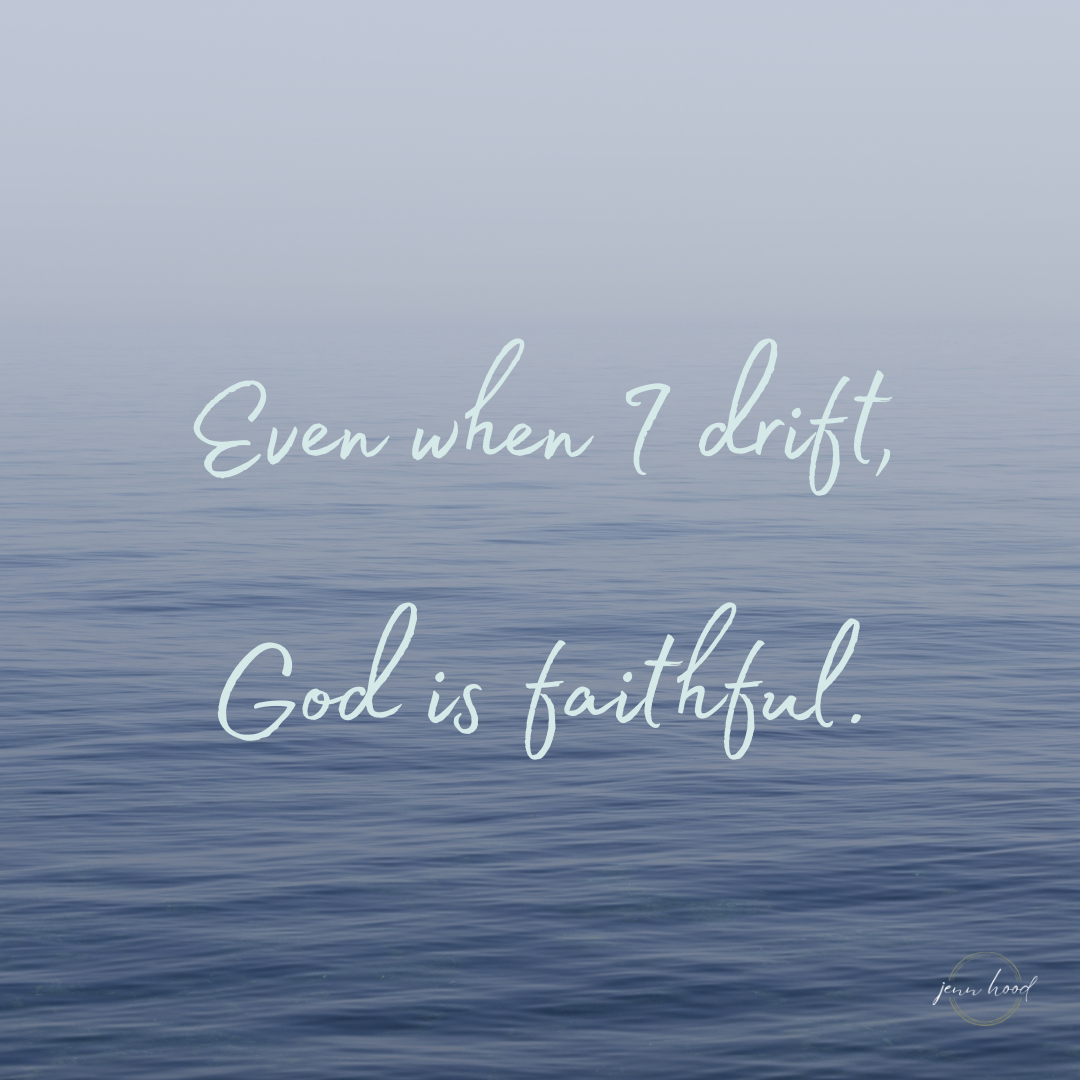 Even when I drift,
God is faithful.
jenn hood